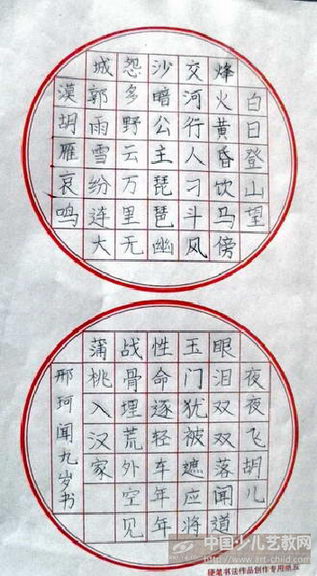 白日登山望
烽火黄昏饮马傍
交河行人刁斗风
沙暗公主琵琶幽
怨多野云万里无
城郭雨雪纷连大
漠胡雁哀鸣
夜夜飞胡儿
眼泪双双落闻道
玉门犹被遮应将
性命逐轻车年年
战骨埋荒外空见
蒲桃入汉家
邢珂闻九岁书
中国少儿艺教网
www.art-child.com
硬笔书法作品创作专用纸